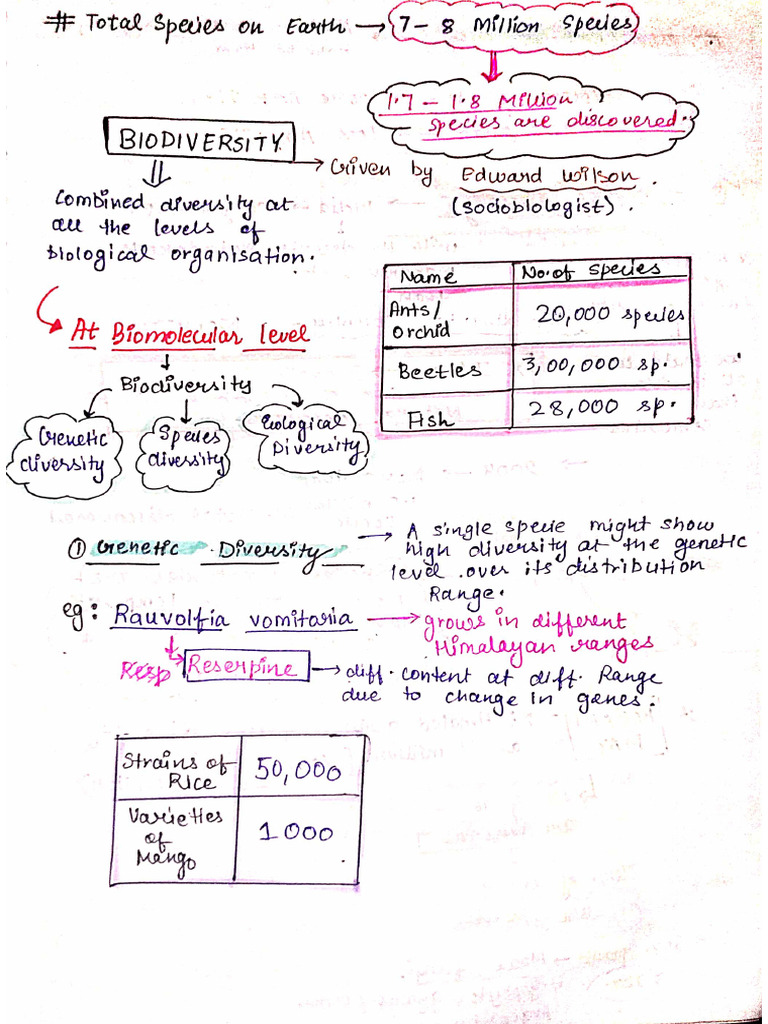 # Total Species on Earth → 7 – 8 Million Species
1.7 – 1.8 Million
species are discovered.
BIODIVERSITY
→ Given by Edward Wilson.
(sociobiologist).
Combined diversity at
all the levels of
biological organisation.
Name | No. of species
Ants/ Orchid | 20,000 species
Beetles | 3,00,000 sp.
Fish | 28,000 sp.
At Biomolecular level
Biodiversity
Genetic diversity
Species diversity
Ecological Diversity
① Genetic Diversity → A single specie might show
high diversity at the genetic
level over its distribution
Range.
eg: Rauvolfia vomitaria → grows in different
Himalayan ranges
Resp Reserpine → diff. content at diff. Range
due to change in genes.
Strains of Rice | 50,000
Varieties of Mango | 1000